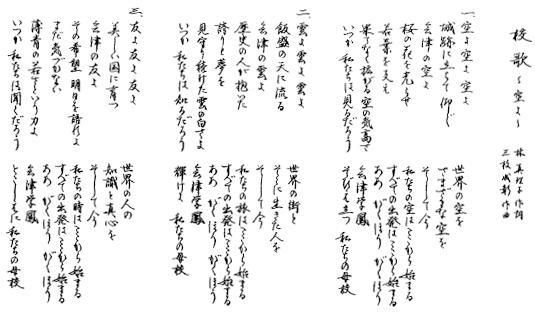 校歌 ～空よ～
林真理子 作詞
三枝成彰 作曲
一、空よ 空よ 空よ
城跡に立ちて 仰ぐ
会津の空よ
桜の花を光らせ
若葉を支え
果てなく拡がる空の気高さ
いつか 私たちは見るだろう
世界の空を
でもまだ 今 空を
そして今
私たちの空は ここから始まる
すべての出発は ここから始まる
ああ がくほう がくほう
会津学鳳
そびえ立つ 私たちの母校
二、雲よ 雲よ 雲よ
飯盛の天に流る
会津の雲よ
歴史の人が抱いた
誇りと夢を
見守り続けた雲の白さよ
いつか 私たちは知るだろう
世界の街を
そこに生きた人を
そして今
私たちの旅は ここから始まる
すべての出発は ここから始まる
ああ がくほう がくほう
会津学鳳
輝けよ 私たちの母校
三、友よ 友よ 友よ
美しい国に育つ
会津の友よ
その希望 明日を語れよ
まだ気づかない
薄青の若さという力よ
いつか 私たちは聞くだろう
世界の人の
知識と真心を
そして今
私たちの時は ここから始まる
すべての出発は ここから始まる
ああ がくほう がくほう
会津学鳳
とこしえに 私たちの母校